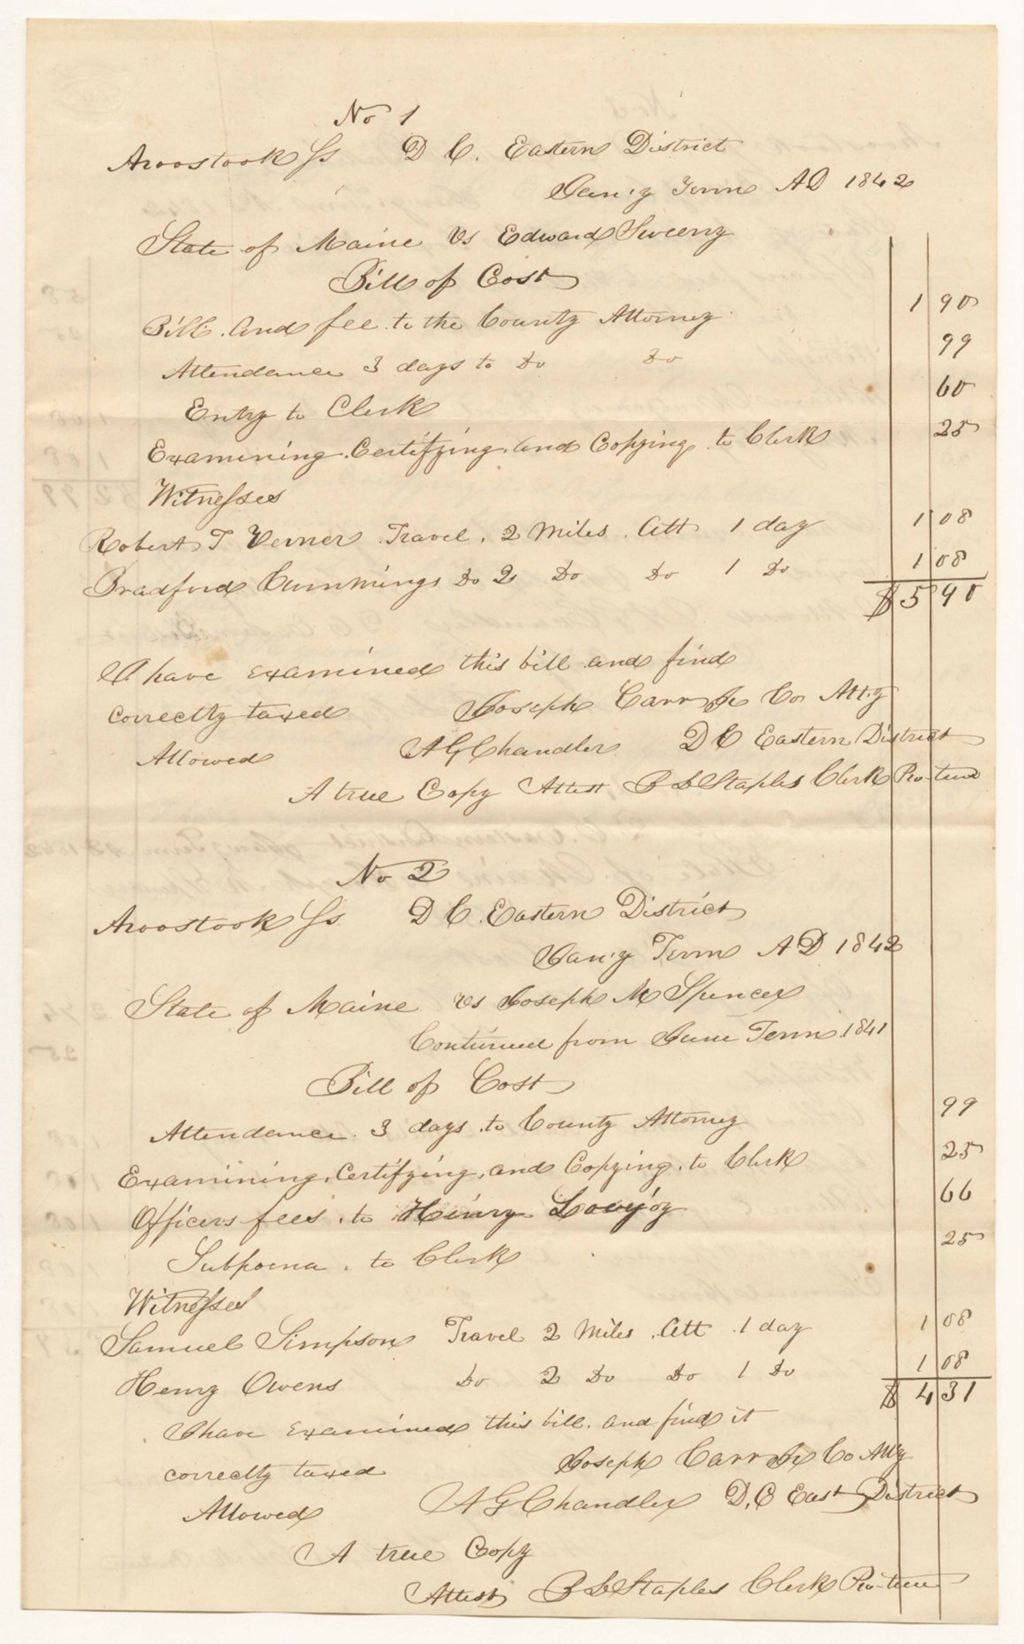 No 1
Aroostook Ss D C. Eastern District
Jan'y Term AD 1842
State of Maine Vs Edward Sweeny
Bill of Cost
Bill. and fee. to the County Attorney 1 90
Attendance 3 days to Do Do 99
Entry to Clerk 60
Examining. Certifying. and Copying. to Clerk 25
Witnesses
Robert T Verner Travel. 2 Miles. Att 1 day 1 08
Bradford Cummings Do 2 Do Do 1 Do 1 08
$5 90
I have examined this bill and find
correctly taxed Joseph Carr Jr Co Att'y
Allowed A G Chandler D C Eastern District
A true Copy Attest B L Staples Clerk Pro-tem
No 2
Aroostook Ss D C. Eastern District
Jan'y Term AD 1842
State of Maine vs Joseph M Spencer
Continued from June Term 1841
Bill of Cost
Attendance. 3 days. to County Attorney 99
Examining, Certifying, and Copying. to Clerk 25
Officers fees. to Henry 66
Subpoena. to Clerk 25
Witnesses
Samuel Simpson Travel 2 Miles. Att. 1 day 1 08
Henry Owens Do 2 Do Do 1 Do 1 08
$ 4 31
I have examined this bill. and find it
correctly taxed Joseph Carr Jr Co Atty
Allowed A G Chandler D. C East District
A true Copy
Attest B L Staples Clerk Pro-tem